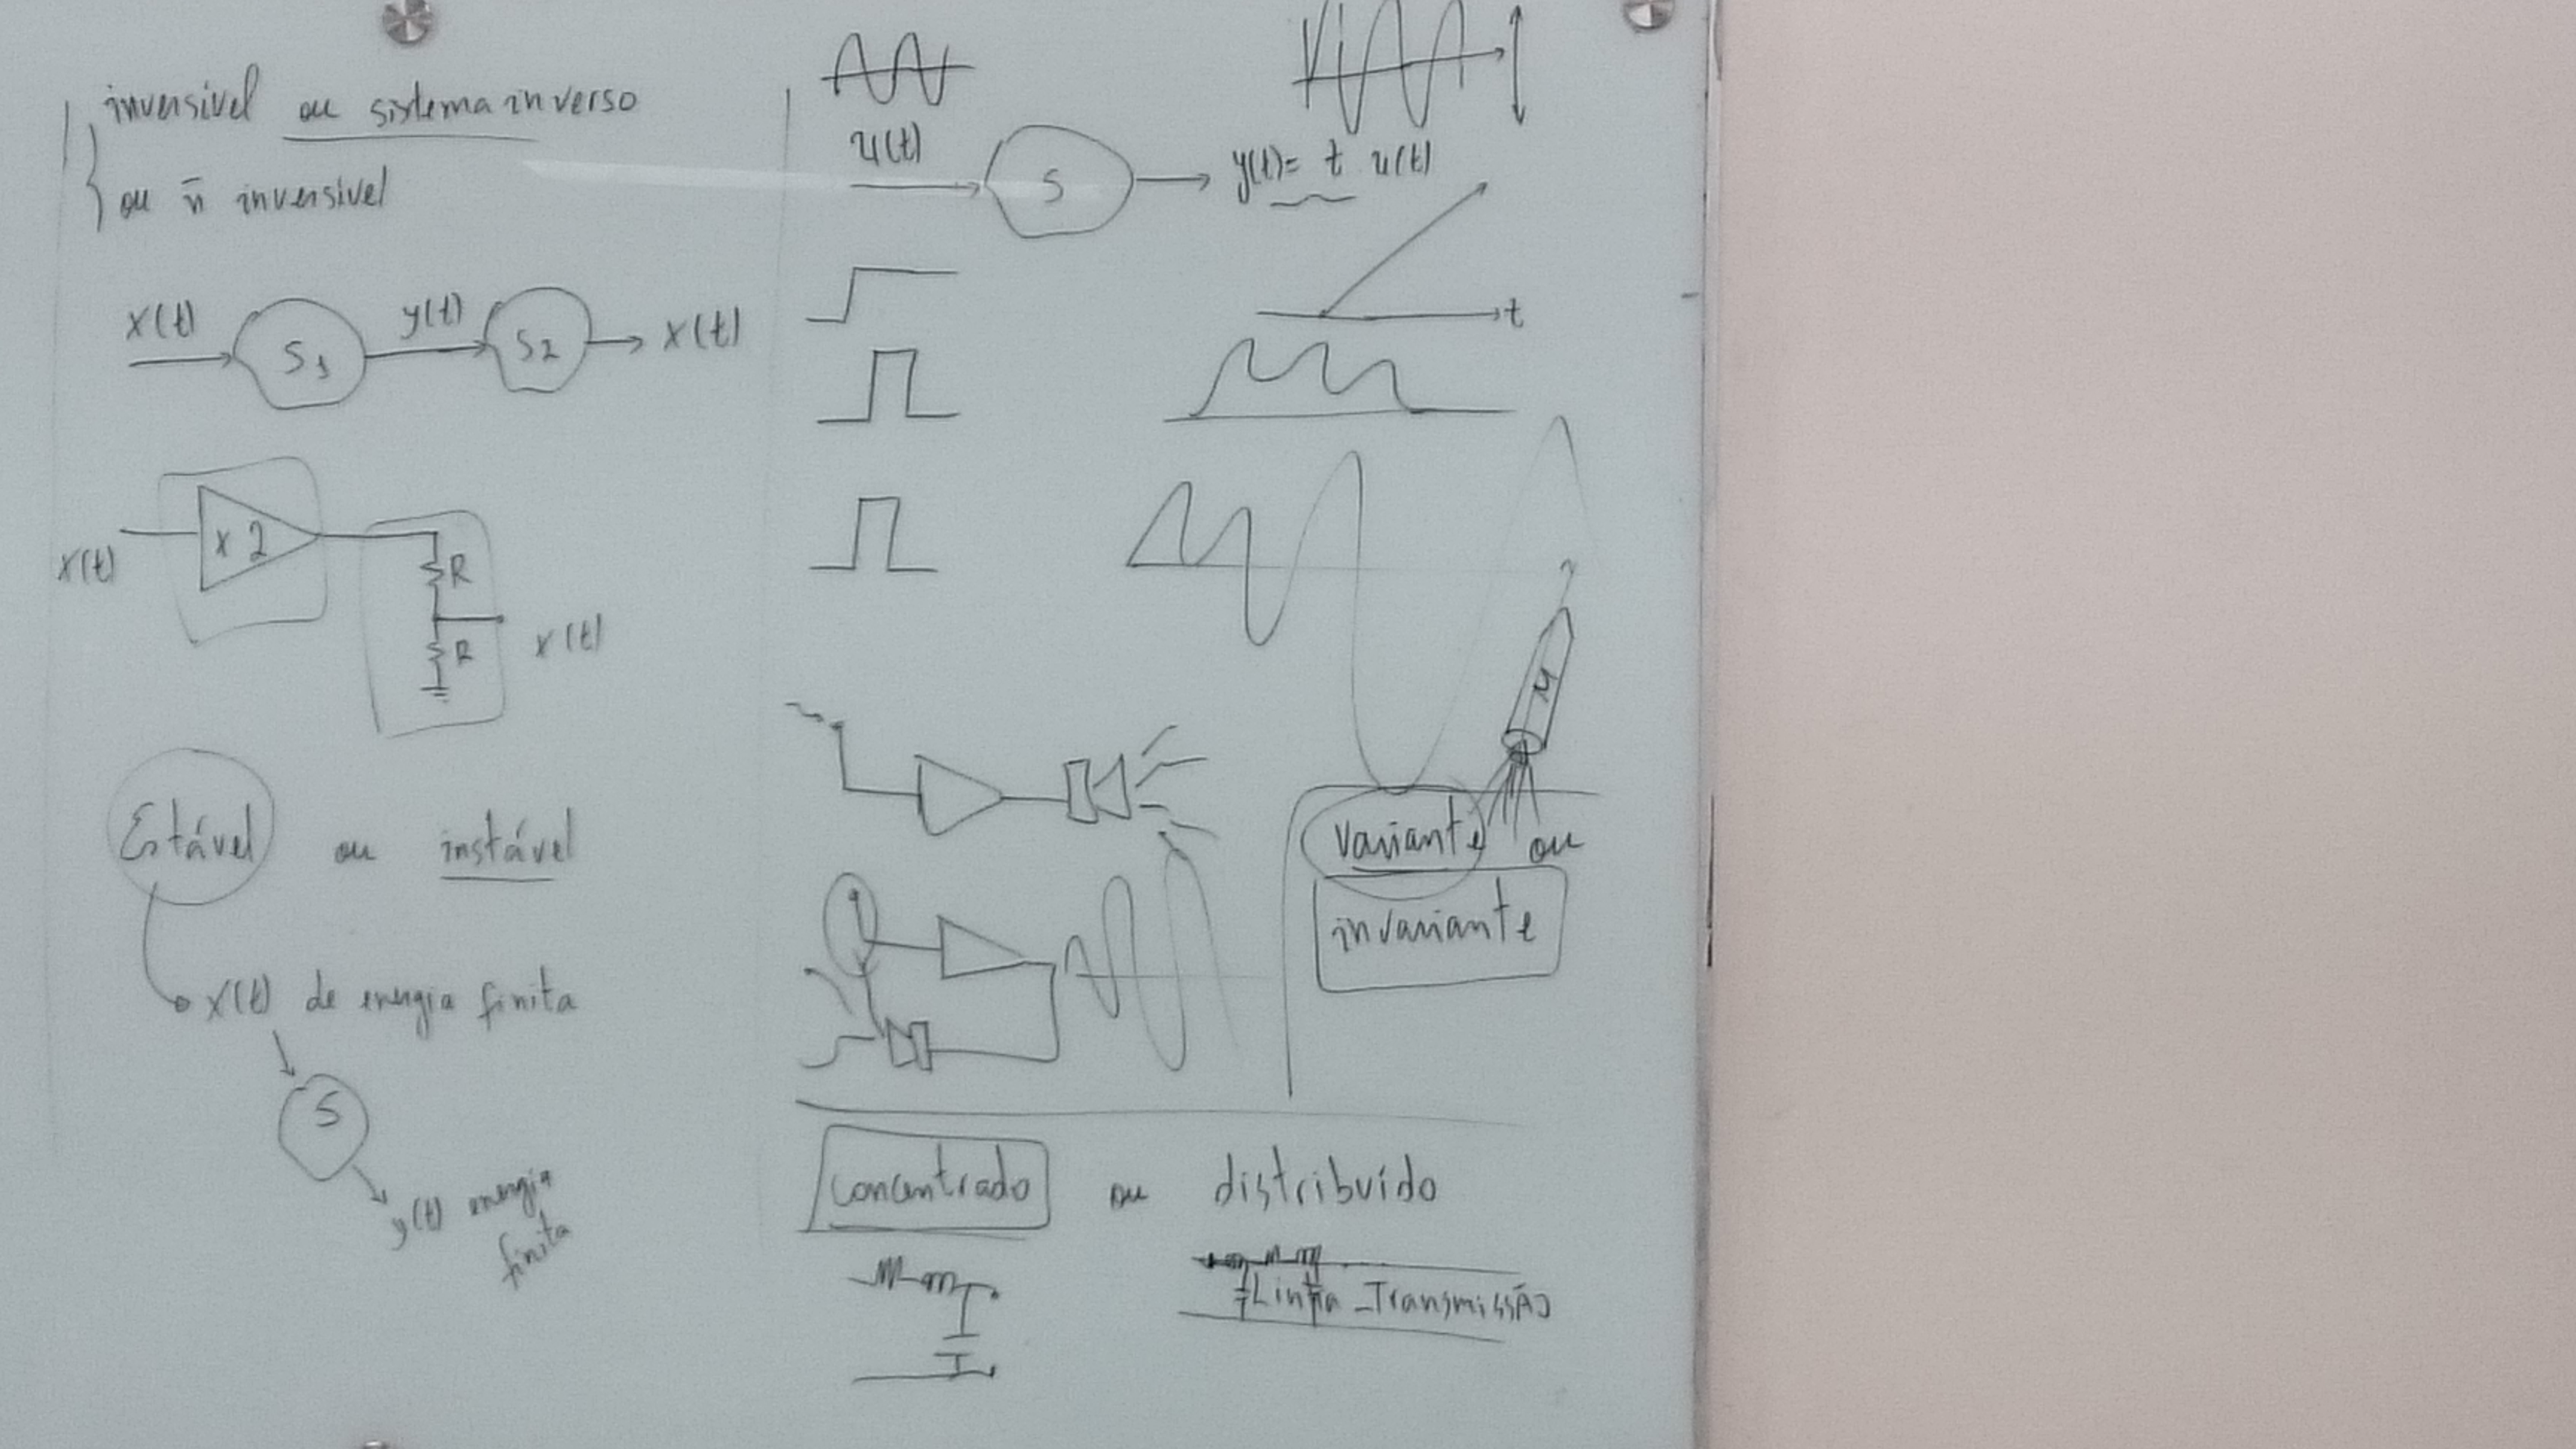 inversível ou sistema inverso
ou n̄ inversível
x(t) S1 y(t) S2 x(t)
x(t) x 2 R
R x(t)
Estável ou instável
x(t) de energia finita
S
y(t) energia
finita
u(t) S y(t)= t u(t)
t
M
variante ou
invariante
concentrado ou distribuído
Linha Transmissão